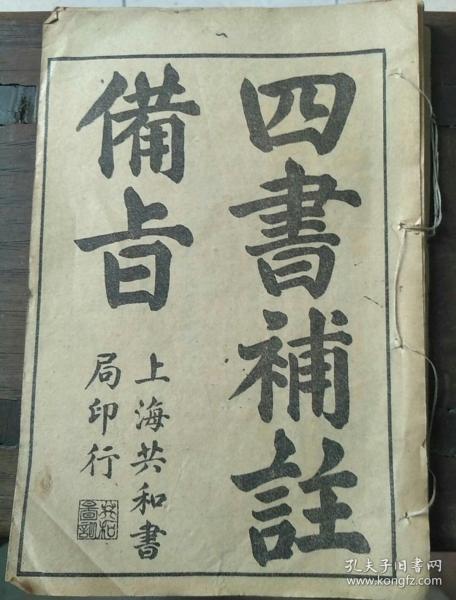 四書補註
備㫖
上海共和書
局印行
孔夫子旧书网
www.kongfz.com